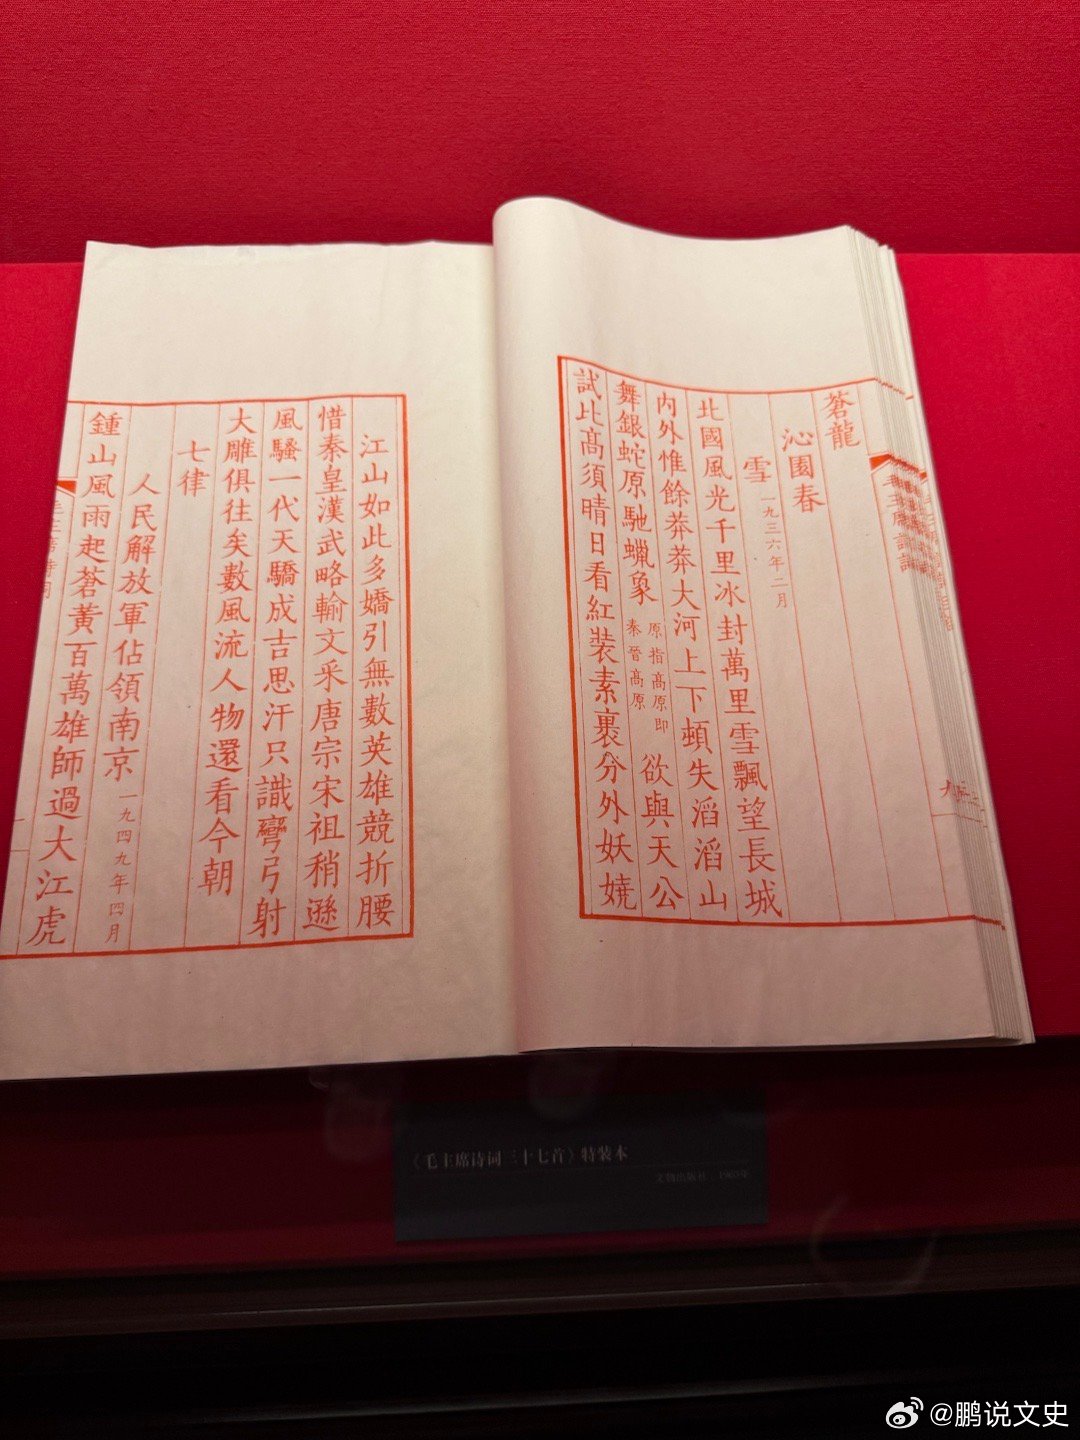 蒼龍
沁園春
雪 一九三六年二月
北國風光千里冰封萬里雪飄望長城
內外惟餘莽莽大河上下頓失滔滔山
舞銀蛇原馳蠟象 原指高原即秦晉高原 欲與天公
試比高須晴日看紅裝素裹分外妖嬈
江山如此多嬌引無數英雄競折腰
惜秦皇漢武略輸文采唐宗宋祖稍遜
風騷一代天驕成吉思汗只識彎弓射
大雕俱往矣數風流人物還看今朝
七律
人民解放軍佔領南京 一九四九年四月
鍾山風雨起蒼黃百萬雄師過大江虎
《毛主席诗词三十七首》特装本
文物出版社
@鹏说文史